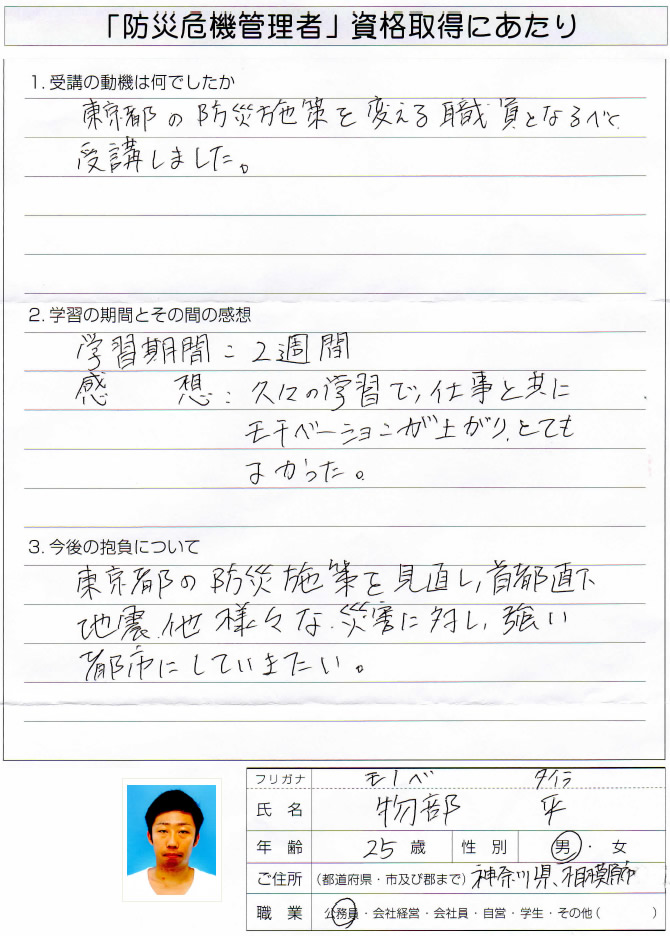 「防災危機管理者」資格取得にあたり
1. 受講の動機は何でしたか
東京都の防災施策を変える職員となるべく
受講しました。
2. 学習の期間とその間の感想
学習期間：2週間
感　想：久々の学習で、仕事と共に
モチベーションが上がり、とても
よかった。
3. 今後の抱負について
東京都の防災施策を見直し、首都直下
地震、他 様々な災害に対し、強い
都市にしていきたい。
フリガナ　モノベ　タイラ
氏名　物部　平
年齢　25歳　性別　男・女
ご住所　(都道府県・市及び郡まで)　神奈川県、相模原市
職業　公務員・会社経営・会社員・自営・学生・その他(　　)